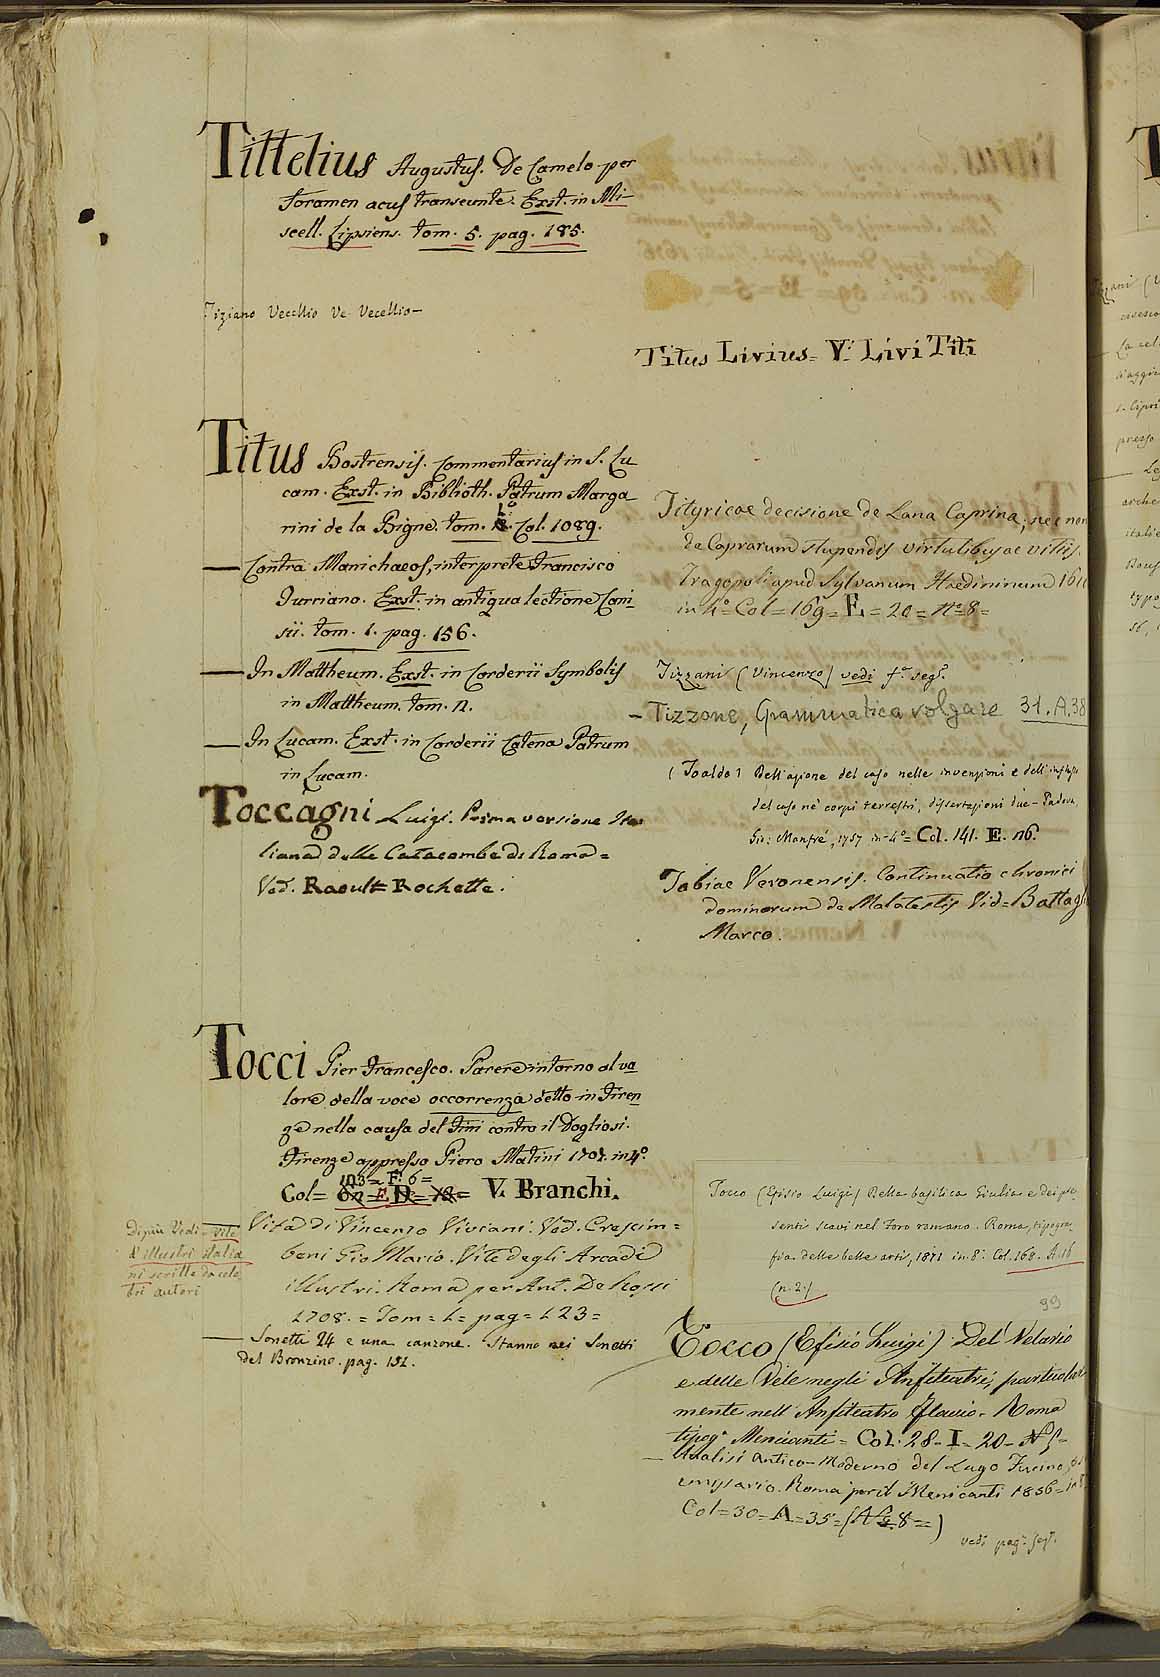 Tittelius Augustus. De Camelo per
foramen acus transeunte. Exst. in Mi-
scell. Lipsiens. tom. 5. pag. 185.
Tiziano Vecellio Ve Vecellio-
Titus Bostrensis. Commentarius in S. Lu
cam. Exst. in Biblioth. Patrum Marga
rini de la Bigne. tom. Col. 1089.
Contra Manichaeos, interprete Francisco
Turriano. Exst. in antiqua lectione Cani-
sii. tom. 1. pag. 156.
In Mattheum. Exst. in Corderii Symbolis
in Mattheum. tom. 11.
In Lucam. Exst. in Corderii Catena Patrum
in Lucam.
Toccagni Luigi. Prima versione Ita
liana delle Catacombe di Roma =
Ved. Raoult= Rochette.
Tocci Pier Francesco. Parere intorno al va
lore della voce occorrenza detto in Firen
ze nella causa del Tini contro il Dogliosi.
Firenze appresso Piero Matini 1707. in 4°
103 = F. 6 =
Col= V. Branchi.
Vita di Vincenzo Viviani. Ved. Crescim=
beni Gio Mario. Vite degli Arcadi
illustri. Roma per Ant. De Rossi
1708. = Tom = 1 = pag = 123 =
Di più Vedi = Vite
d'illustri italia
ni scritte da cele
bri autori
Sonetti 24 e una canzone. Stanno nei Sonetti
del Bronzino. pag. 151.
Titus Livius= V. Livi Titi
Tityricae decisione de Lana Caprina, nec non
de Caprarum stupendis virtutibus ac vitiis.
Tragopoli apud Sylvanum Haedininum
in 4° Col = 169 = E = 20 = N° 8 =
Tizzani (Vincenzo) vedi f.° seg.e
- Tizzone, Grammatica volgare 31. A. 38
(Toaldo) Dell'azione del caso nelle invenzioni e dell'influsso
del caso ne' corpi terrestri, dissertazioni due - Padova,
Gio: Manfrè, 1757 in-4° = Col. 141. E. n6.
Tobiae Veronensis. Continuatio chronici
dominorum de Malatestis Vid= Battagl
Marco.
Tocco (Efisio Luigi) Della basilica Giulia e dei pre
senti scavi nel foro romano. Roma, tipogra
fia delle belle arti, 1871 in 8.° Col. 168. A. 16
(n. 2.)
99
Tocco (Efisio Luigi) Del Velario
e delle Vele negli Anfiteatri, particolar
mente nell'Anfiteatro Flavio. Roma
tipog.a Menicanti = Col: 28 = I = 20 =
Analisi Antico-Moderno del Lago Fucino
emissario. Roma per il Menicanti 1856 = in 8
Col = 30 = A = 35 = (N° 8 = )
vedi pag. seg.